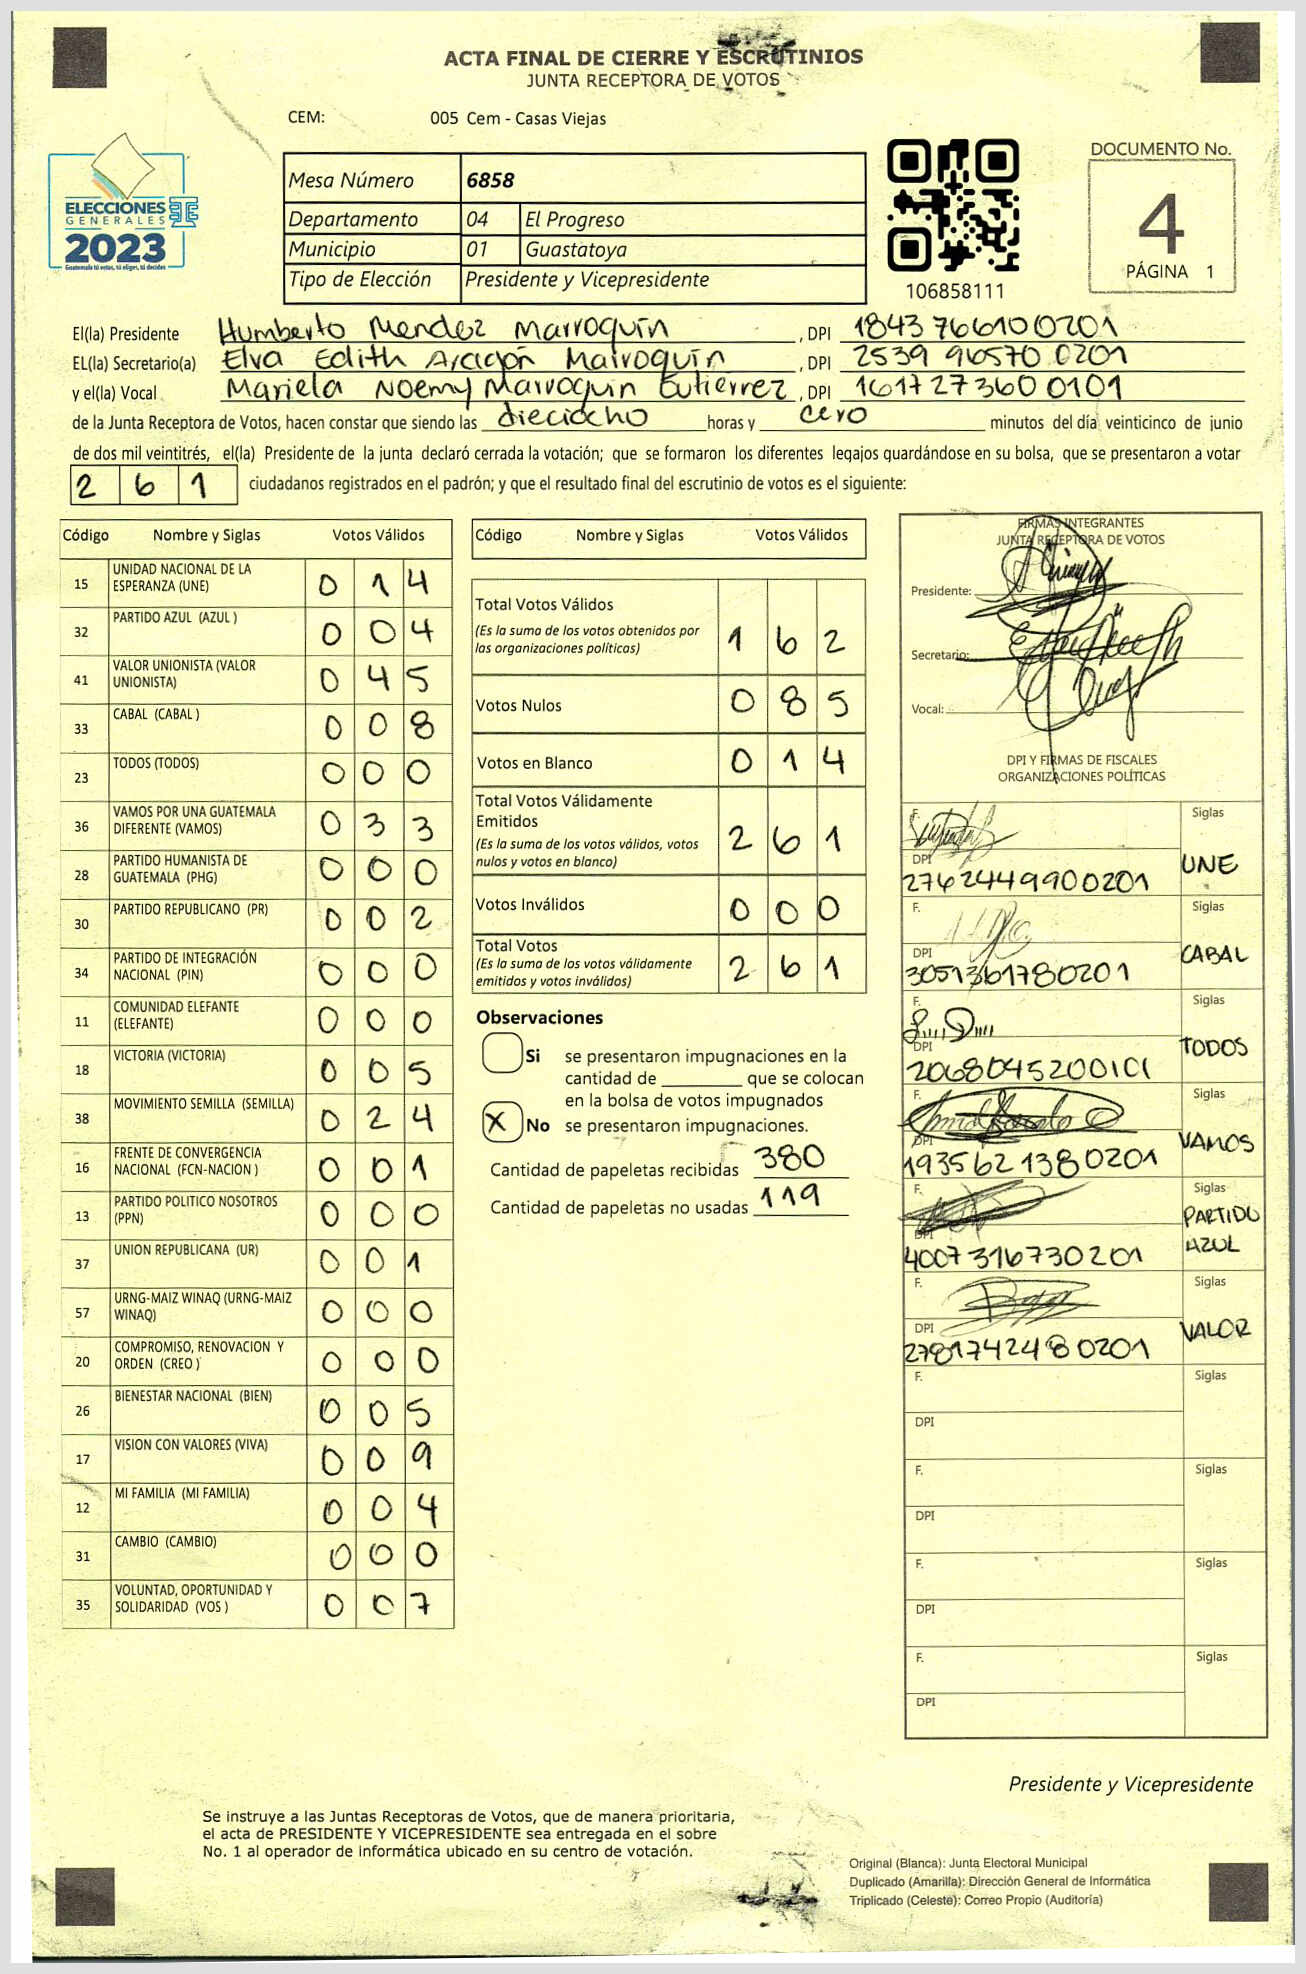 ACTA FINAL DE CIERRE Y ESCRUTINIOS
JUNTA RECEPTORA DE VOTOS
CEM: 005 Cem - Casas Viejas
ELECCIONES
GENERALES
2023
Guatemala tú votas, tú eliges, tú decides
Mesa Número 6858
Departamento 04 El Progreso
Municipio 01 Guastatoya
Tipo de Elección Presidente y Vicepresidente
106858111
DOCUMENTO No.
4
PÁGINA 1
El(la) Presidente Humberto Mendez Marroquín , DPI 1843766100201
EL(la) Secretario(a) Elva Edith Aragón Marroquín , DPI 2539 96570 0201
y el(la) Vocal Mariela Noemy Marroquin Gutierrez , DPI 1617273600101
de la Junta Receptora de Votos, hacen constar que siendo las dieciocho horas y cero minutos del día veinticinco de junio
de dos mil veintitrés, el(la) Presidente de la junta declaró cerrada la votación; que se formaron los diferentes legajos guardándose en su bolsa, que se presentaron a votar
2 6 1 ciudadanos registrados en el padrón; y que el resultado final del escrutinio de votos es el siguiente:
Código Nombre y Siglas Votos Válidos
15 UNIDAD NACIONAL DE LA ESPERANZA (UNE) 0 1 4
32 PARTIDO AZUL (AZUL ) 0 0 4
41 VALOR UNIONISTA (VALOR UNIONISTA) 0 4 5
33 CABAL (CABAL ) 0 0 8
23 TODOS (TODOS) 0 0 0
36 VAMOS POR UNA GUATEMALA DIFERENTE (VAMOS) 0 3 3
28 PARTIDO HUMANISTA DE GUATEMALA (PHG) 0 0 0
30 PARTIDO REPUBLICANO (PR) 0 0 2
34 PARTIDO DE INTEGRACIÓN NACIONAL (PIN) 0 0 0
11 COMUNIDAD ELEFANTE (ELEFANTE) 0 0 0
18 VICTORIA (VICTORIA) 0 0 5
38 MOVIMIENTO SEMILLA (SEMILLA) 0 2 4
16 FRENTE DE CONVERGENCIA NACIONAL (FCN-NACION ) 0 0 1
13 PARTIDO POLITICO NOSOTROS (PPN) 0 0 0
37 UNION REPUBLICANA (UR) 0 0 1
57 URNG-MAIZ WINAQ (URNG-MAIZ WINAQ) 0 0 0
20 COMPROMISO, RENOVACION Y ORDEN (CREO ) 0 0 0
26 BIENESTAR NACIONAL (BIEN) 0 0 5
17 VISION CON VALORES (VIVA) 0 0 9
12 MI FAMILIA (MI FAMILIA) 0 0 4
31 CAMBIO (CAMBIO) 0 0 0
35 VOLUNTAD, OPORTUNIDAD Y SOLIDARIDAD (VOS ) 0 0 7
Código Nombre y Siglas Votos Válidos
Total Votos Válidos
(Es la suma de los votos obtenidos por
las organizaciones políticas) 1 6 2
Votos Nulos 0 8 5
Votos en Blanco 0 1 4
Total Votos Válidamente
Emitidos
(Es la suma de los votos válidos, votos
nulos y votos en blanco) 2 6 1
Votos Inválidos 0 0 0
Total Votos
(Es la suma de los votos válidamente
emitidos y votos inválidos) 2 6 1
Observaciones
Si se presentaron impugnaciones en la
cantidad de ________ que se colocan
en la bolsa de votos impugnados
X No se presentaron impugnaciones.
Cantidad de papeletas recibidas 380
Cantidad de papeletas no usadas 119
FIRMAS INTEGRANTES
JUNTA RECEPTORA DE VOTOS
Presidente:
Secretario:
Vocal:
DPI Y FIRMAS DE FISCALES
ORGANIZACIONES POLÍTICAS
F. Siglas
DPI UNE
2762449900201
F. Siglas
DPI CABAL
3051361780201
F. Siglas
DPI TODOS
2068045200101
F. Siglas
DPI VAMOS
1935621380201
F. Siglas
DPI PARTIDO AZUL
4007316730201
F. Siglas
DPI VALOR
2781742480201
F. Siglas
DPI
F. Siglas
DPI
F. Siglas
DPI
F. Siglas
DPI
Presidente y Vicepresidente
Se instruye a las Juntas Receptoras de Votos, que de manera prioritaria,
el acta de PRESIDENTE Y VICEPRESIDENTE sea entregada en el sobre
No. 1 al operador de informática ubicado en su centro de votación.
Original (Blanca): Junta Electoral Municipal
Duplicado (Amarilla): Dirección General de Informática
Triplicado (Celeste): Correo Propio (Auditoría)